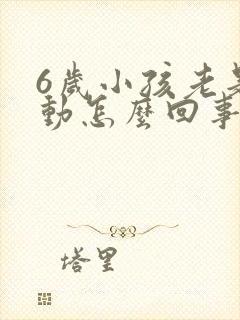 6歲小孩老是
動怎麼回事
塔里